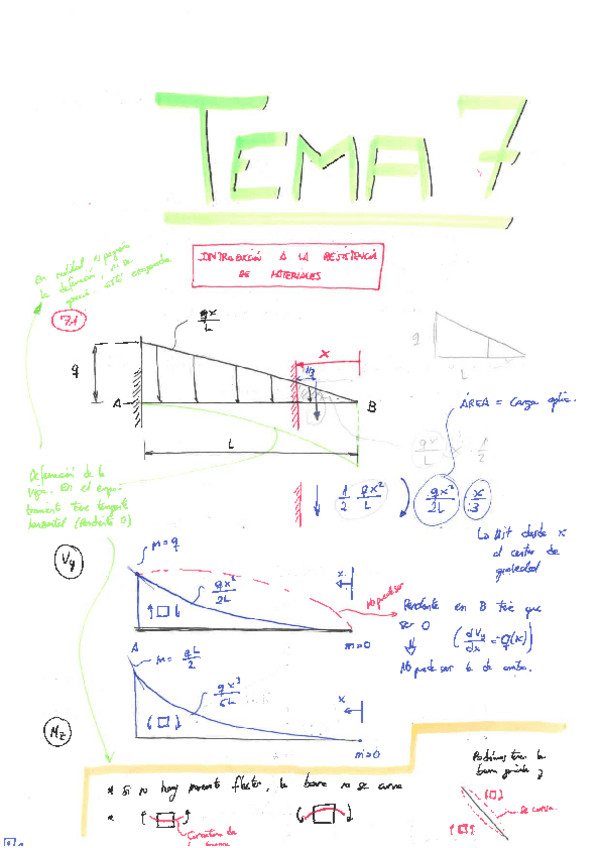 TEMA 7
INTRODUCCIÓN A LA RESISTENCIA
DE MATERIALES
En realidad es pequeña
la deformación, si se
está exagerada
7.1
qx/L
q
x
A
B
L
q
L
qx/L · x · 1/2
ÁREA = Carga
1/2 qx²/L
qx²/2L · x/3
La dist desde x
al centro de
gravedad
Deformación de la
viga. En el empo-
tramiento tiene tangente
horizontal (Pendiente 0)
Vy
m=q
qx²/2L
x
No puede ser
m=0
Pendiente en B tiene que
ser 0
(dVy/dx = -q(x))
No puede ser la de arriba.
A
m= qL/2
qx³/6L
x
m=0
Mz
* Si no hay momento flector, la barra no se curva
*
Curvatura de
Podríamos tener la
barra y
se curva